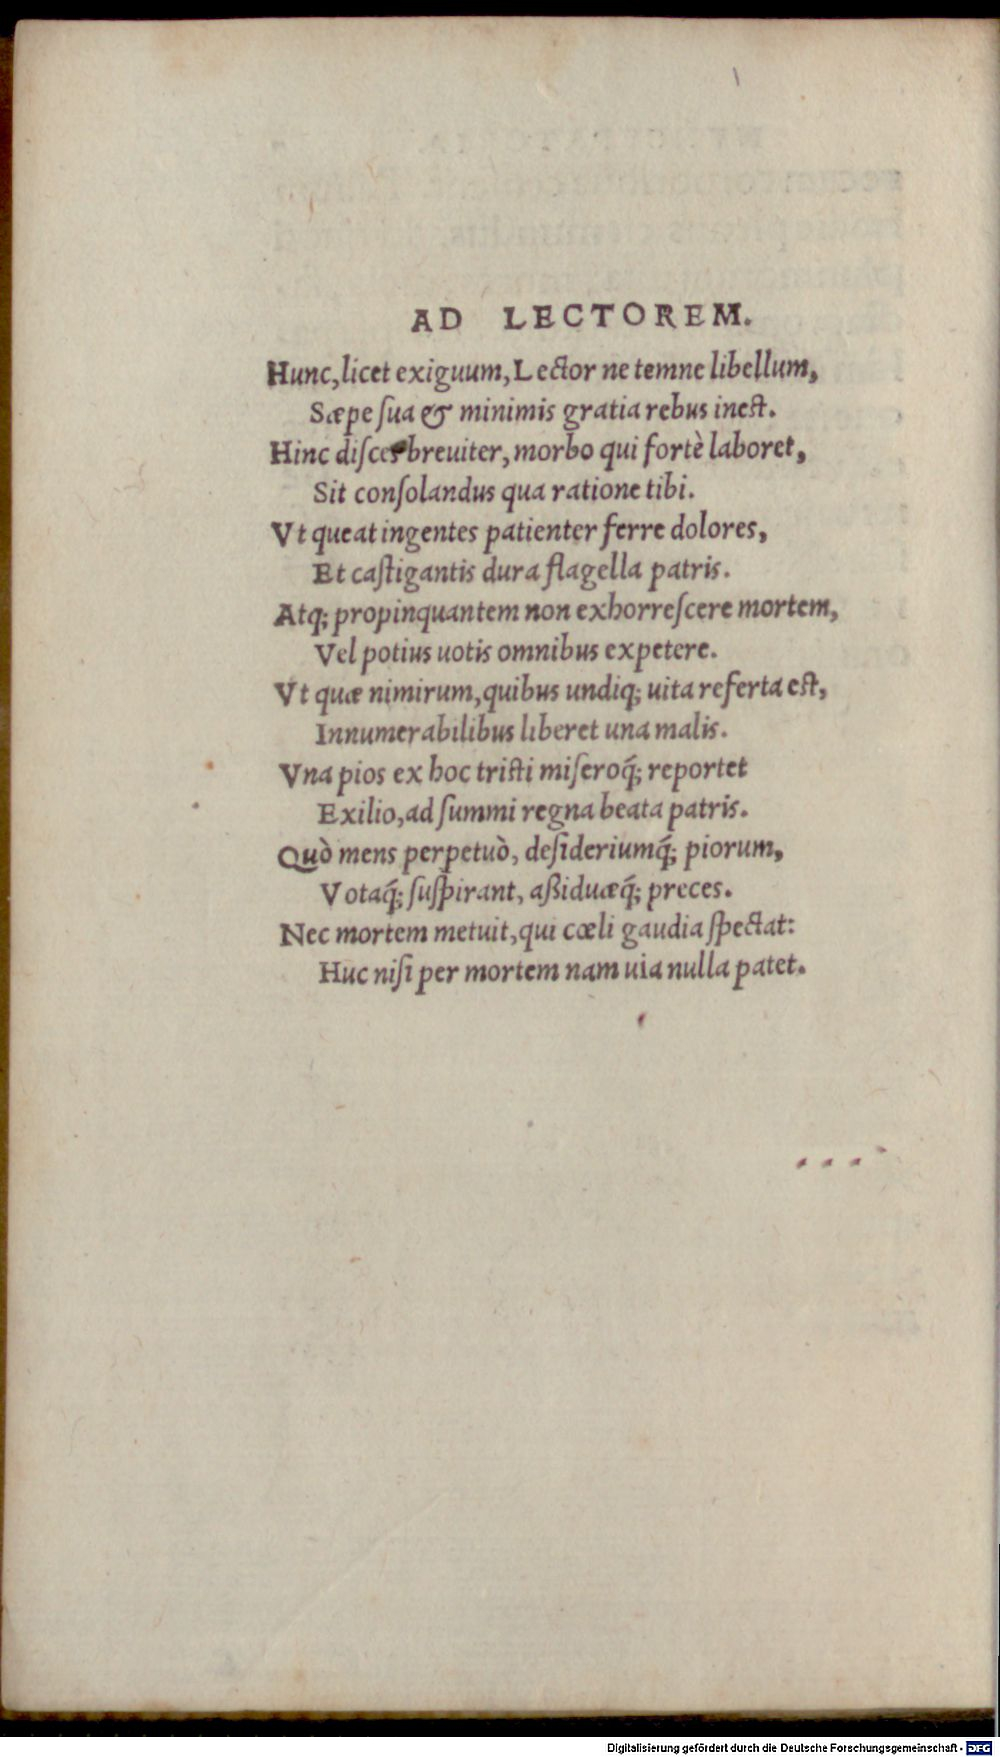 AD LECTOREM.
Hunc, licet exiguum, Lector ne temne libellum,
Sæpe ſua & minimis gratia rebus ineſt.
Hinc diſces breuiter, morbo qui fortè laboret,
Sit conſolandus qua ratione tibi.
Vt queat ingentes patienter ferre dolores,
Et caſtigantis dura flagella patris.
Atq; propinquantem non exhorreſcere mortem,
Vel potius uotis omnibus expetere.
Vt quæ nimirum, quibus undiq; uita referta eſt,
Innumerabilibus liberet una malis.
Vna pios ex hoc triſti miſeroq́; reportet
Exilio, ad ſummi regna beata patris.
Quò mens perpetuò, deſideriumq́; piorum,
Votaq́; ſuſpirant, aßiduæq́; preces.
Nec mortem metuit, qui cœli gaudia ſpectat:
Huc niſi per mortem nam uia nulla patet.
Digitalisierung gefördert durch die Deutsche Forschungsgemeinschaft - DFG